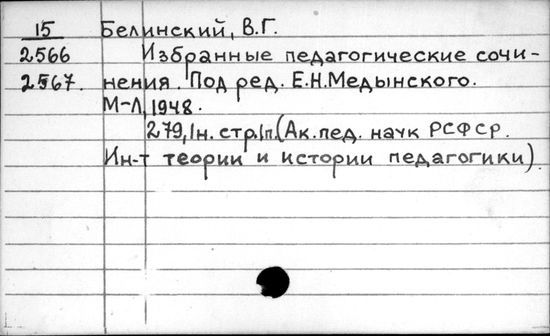 15 Белинский, В.Г.
2566 Избранные педагогические сочи-
2567. нения. Под ред. Е.Н.Медынского.
М-Л, 1948.
279, 1н. стр. 1п. (Ак. пед. наук РСФСР.
Ин-т теории и истории педагогики)